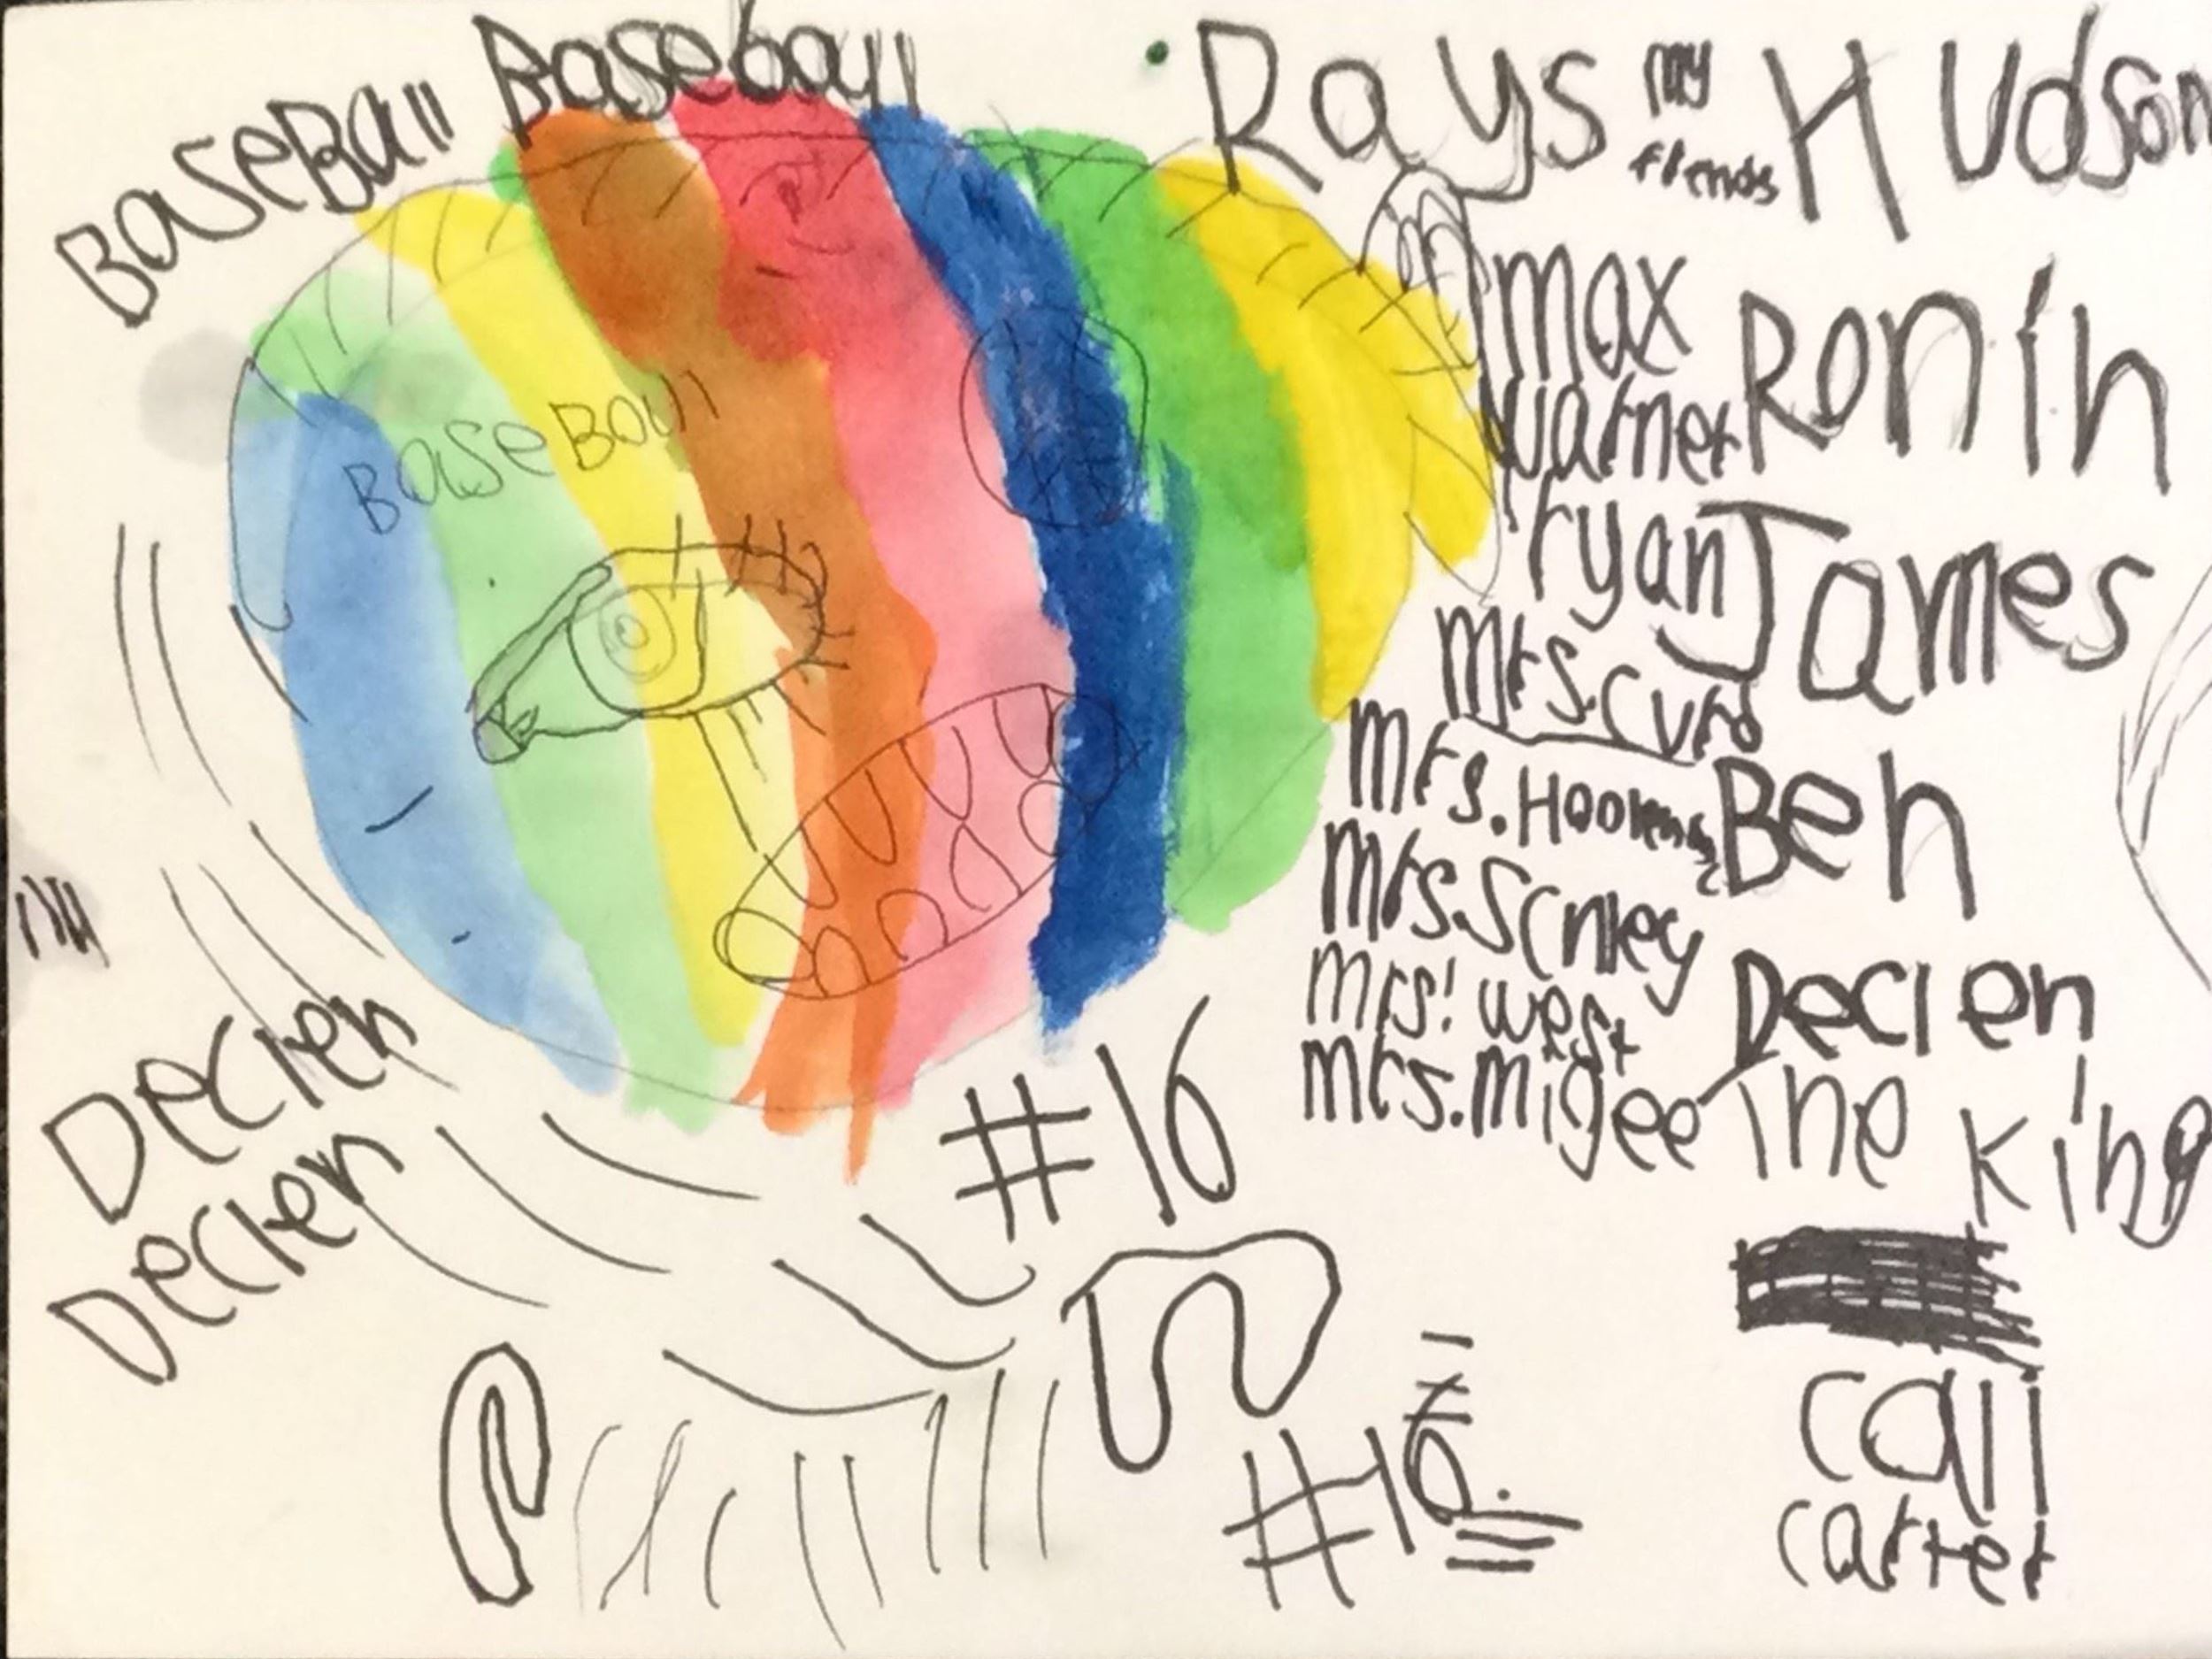 BaseBall Baseball
Rays my fiends Hudson
BaseBall
max Ronin
warner
ryan James
mrs.
mrs. Ben
mrs.
mrs! west Declen
mrs. migee The King
Declen
Declen
#16
#16.
call
carter